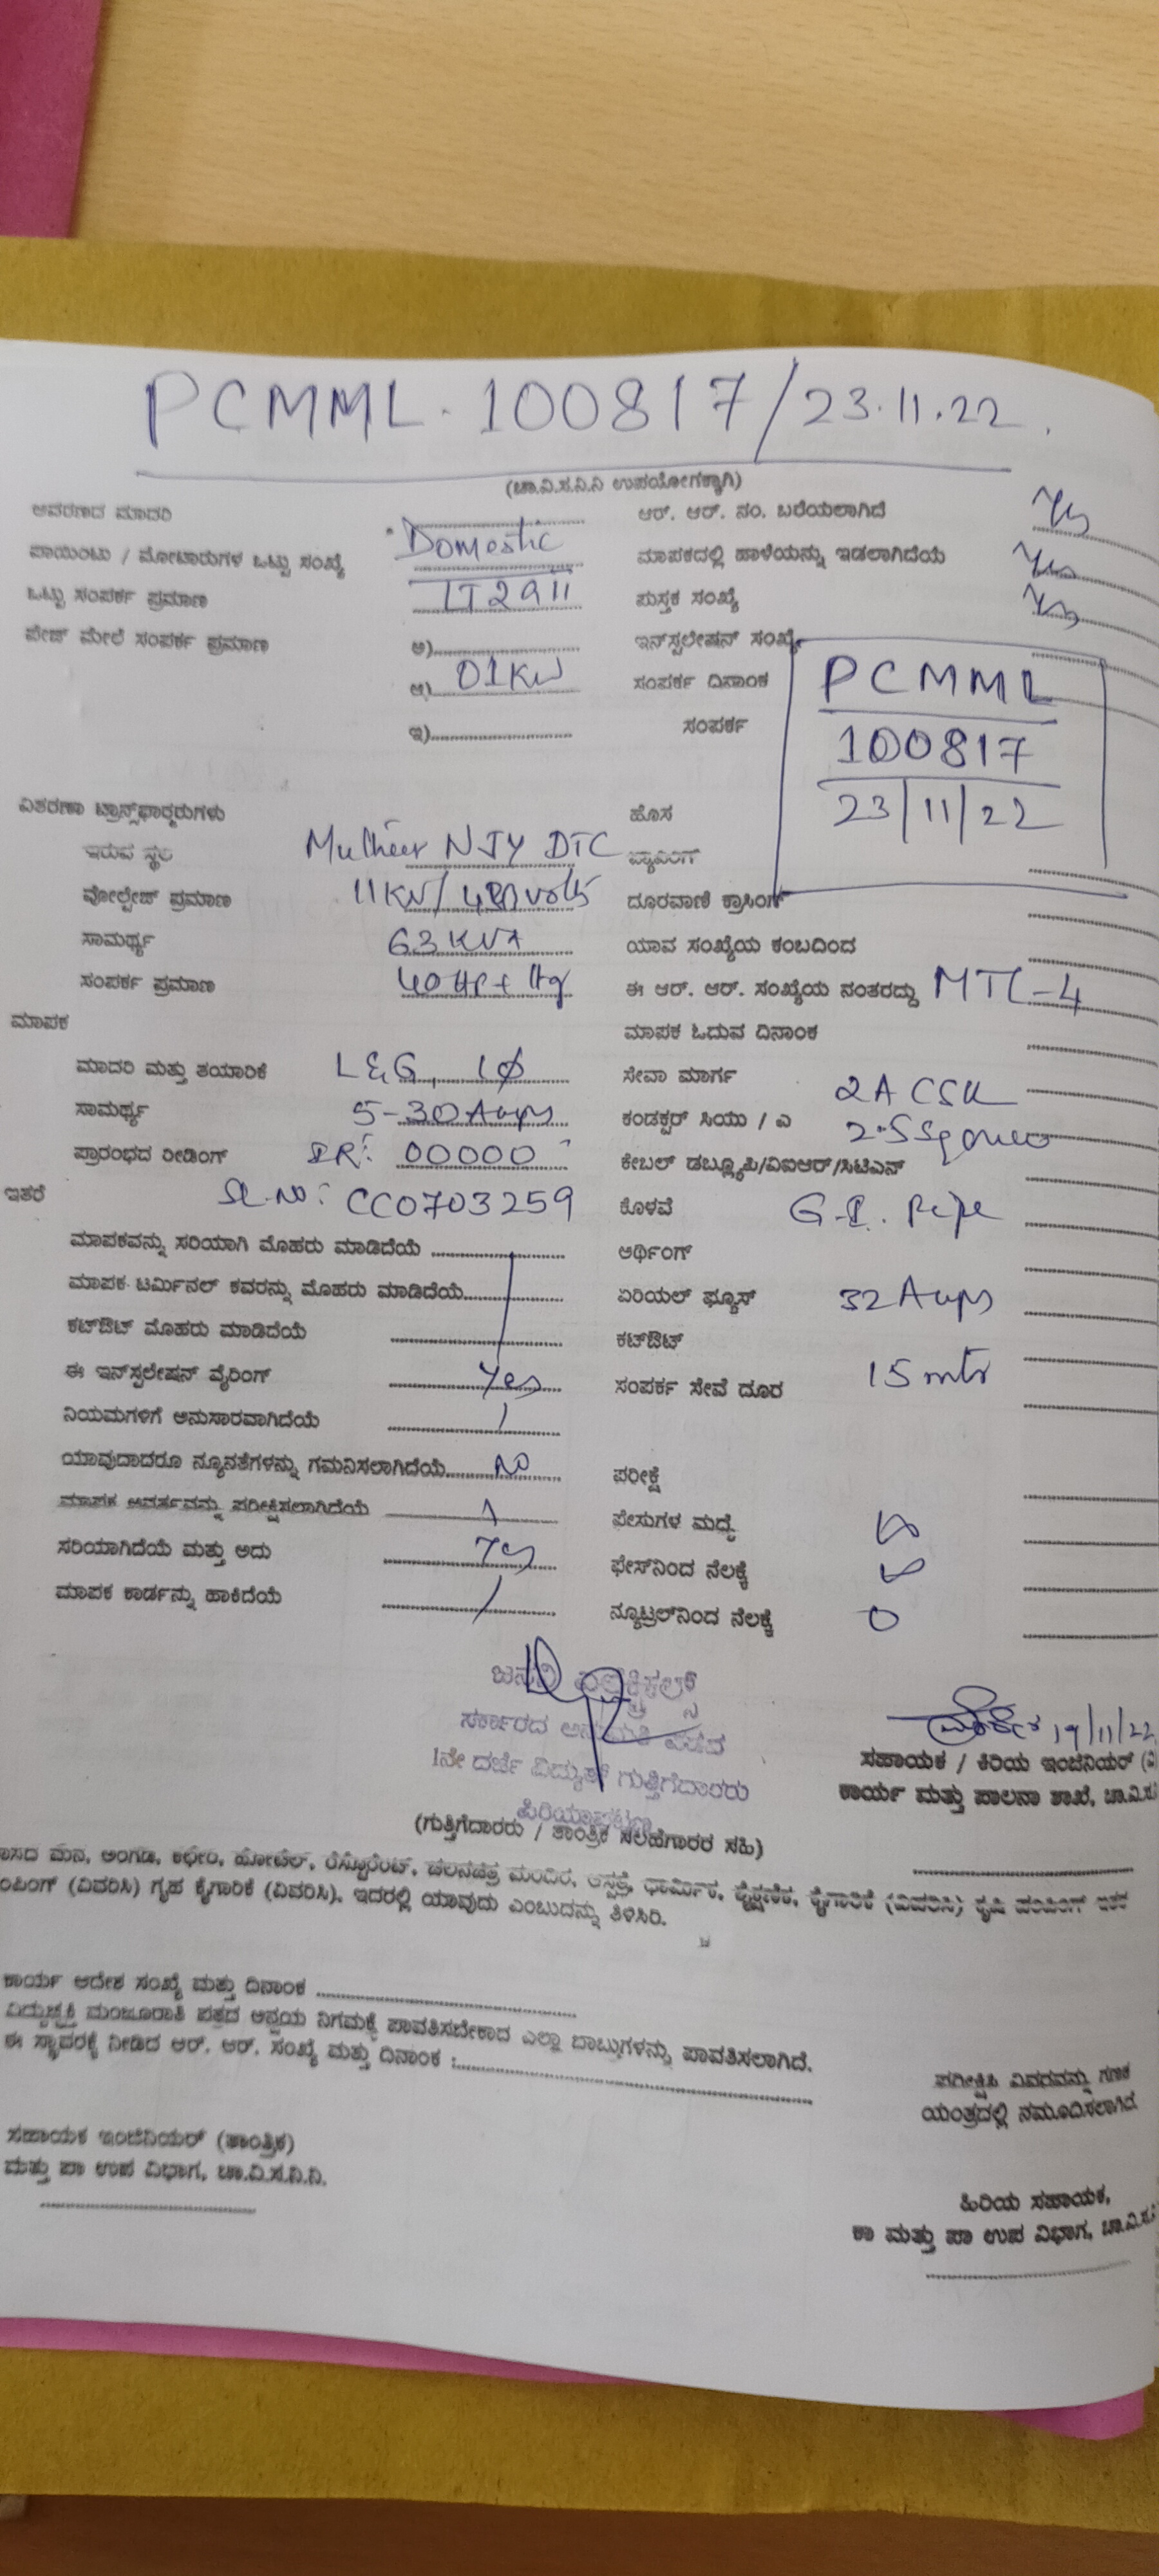 PCMML. 100817/23.11.22.
(ಚಾ.ವಿ.ಸ.ನಿ.ನಿ ಉಪಯೋಗಕ್ಕಾಗಿ)
ಆವರಣದ ಮಾದರಿ ಆರ್. ಆರ್. ನಂ. ಬರೆಯಲಾಗಿದೆ Yes
ಪಾಯಿಂಟು / ಮೋಟಾರುಗಳ ಒಟ್ಟು ಸಂಖ್ಯೆ Domestic ಮಾಪಕದಲ್ಲಿ ಹಾಳೆಯನ್ನು ಇಡಲಾಗಿದೆಯೆ Yes
ಒಟ್ಟು ಸಂಪರ್ಕ ಪ್ರಮಾಣ ಪುಸ್ತಕ ಸಂಖ್ಯೆ Yes
ಪೇಜ್ ಮೇಲೆ ಸಂಪರ್ಕ ಪ್ರಮಾಣ ಅ) ಇನ್‌ಸ್ಟಲೇಷನ್ ಸಂಖ್ಯೆ
ಆ) 01KW ಸಂಪರ್ಕ ದಿನಾಂಕ PCMML
ಇ) ಸಂಪರ್ಕ 100817
23/11/22
ವಿತರಣಾ ಟ್ರಾನ್ಸ್‌ಫಾರ್ಮರುಗಳು ಹೊಸ
ಇರುವ ಸ್ಥಳ NJY DTC
ವೋಲ್ಟೇಜ್ ಪ್ರಮಾಣ 11KV/ volts ದೂರವಾಣಿ ಕ್ರಾಸಿಂಗ್
ಸಾಮರ್ಥ್ಯ 63 KVA ಯಾವ ಸಂಖ್ಯೆಯ ಕಂಬದಿಂದ
ಸಂಪರ್ಕ ಪ್ರಮಾಣ 40 HP + ltg ಈ ಆರ್. ಆರ್. ಸಂಖ್ಯೆಯ ನಂತರದ್ದು MTL-4
ಮಾಪಕ ಮಾಪಕ ಓದುವ ದಿನಾಂಕ
ಮಾದರಿ ಮತ್ತು ತಯಾರಿಕೆ L&G, 1ϕ ಸೇವಾ ಮಾರ್ಗ
ಸಾಮರ್ಥ್ಯ 5-30 Amps ಕಂಡಕ್ಟರ್ ಸಿಯು / ಎ 2 ACSR
ಪ್ರಾರಂಭದ ರೀಡಿಂಗ್ IR: 00000 ಕೇಬಲ್ ಡಬ್ಲ್ಯೂಪಿ/ವಿಐಆರ್/ಸಿಟಿಎಸ್ 2.5 Sqmm
ಇತರೆ SL.NO: CC0703259 ಕೊಳವೆ G.I. Pipe
ಮಾಪಕವನ್ನು ಸರಿಯಾಗಿ ಮೊಹರು ಮಾಡಿದೆಯೆ ಅರ್ಥಿಂಗ್
ಮಾಪಕ ಟರ್ಮಿನಲ್ ಕವರನ್ನು ಮೊಹರು ಮಾಡಿದೆಯೆ ಏರಿಯಲ್ ಫ್ಯೂಸ್ 32 Amps
ಕಟ್‌ಔಟ್ ಮೊಹರು ಮಾಡಿದೆಯೆ ಕಟ್‌ಔಟ್
ಈ ಇನ್‌ಸ್ಟಲೇಷನ್ ವೈರಿಂಗ್ Yes ಸಂಪರ್ಕ ಸೇವೆ ದೂರ 15 mts
ನಿಯಮಗಳಿಗೆ ಅನುಸಾರವಾಗಿದೆಯೆ
ಯಾವುದಾದರೂ ನ್ಯೂನತೆಗಳನ್ನು ಗಮನಿಸಲಾಗಿದೆಯೆ No ಪರೀಕ್ಷೆ
ಮಾಪಕ ಆವರ್ತವನ್ನು ಪರೀಕ್ಷಿಸಲಾಗಿದೆಯೆ ಫೇಸುಗಳ ಮಧ್ಯೆ
ಸರಿಯಾಗಿದೆಯೆ ಮತ್ತು ಅದು Yes ಫೇಸ್‌ನಿಂದ ನೆಲಕ್ಕೆ
ಮಾಪಕ ಕಾರ್ಡನ್ನು ಹಾಕಿದೆಯೆ ನ್ಯೂಟ್ರಲ್‌ನಿಂದ ನೆಲಕ್ಕೆ 0
ಸರ್ಕಾರದ ಅನುಮತಿ ಪಡೆದ 19/11/22
1ನೇ ದರ್ಜೆ ವಿದ್ಯುತ್ ಗುತ್ತಿಗೆದಾರರು ಸಹಾಯಕ / ಕಿರಿಯ ಇಂಜಿನಿಯರ್
ಪಿರಿಯಾಪಟ್ಟಣ ಕಾರ್ಯ ಮತ್ತು ಪಾಲನಾ ಶಾಖೆ, ಚಾ.ವಿ.ಸ
(ಗುತ್ತಿಗೆದಾರರು / ತಾಂತ್ರಿಕ ಸಲಹೆಗಾರರ ಸಹಿ)
ಮನೆ, ಅಂಗಡಿ, ಕಛೇರಿ, ಹೋಟೆಲ್, ರೆಸ್ಟೊರೆಂಟ್, ಚಲನಚಿತ್ರ ಮಂದಿರ, ಆಸ್ಪತ್ರೆ, ಧಾರ್ಮಿಕ, ಶೈಕ್ಷಣಿಕ, ಕೈಗಾರಿಕೆ (ವಿವರಿಸಿ) ಕೃಷಿ ಪಂಪಿಂಗ್ ಇತರ
ಪಂಪಿಂಗ್ (ವಿವರಿಸಿ) ಗೃಹ ಕೈಗಾರಿಕೆ (ವಿವರಿಸಿ), ಇದರಲ್ಲಿ ಯಾವುದು ಎಂಬುದನ್ನು ತಿಳಿಸಿರಿ.
ಕಾರ್ಯ ಆದೇಶ ಸಂಖ್ಯೆ ಮತ್ತು ದಿನಾಂಕ
ವಿದ್ಯುಚ್ಛಕ್ತಿ ಮಂಜೂರಾತಿ ಪತ್ರದ ಅನ್ವಯ ನಿಗಮಕ್ಕೆ ಪಾವತಿಸಬೇಕಾದ ಎಲ್ಲಾ ಬಾಬ್ತುಗಳನ್ನು ಪಾವತಿಸಲಾಗಿದೆ.
ಈ ಸ್ಥಾವರಕ್ಕೆ ನೀಡಿದ ಆರ್. ಆರ್. ಸಂಖ್ಯೆ ಮತ್ತು ದಿನಾಂಕ :
ಪರೀಕ್ಷಿಸಿ ವಿವರವನ್ನು ಗಣಕ
ಯಂತ್ರದಲ್ಲಿ ನಮೂದಿಸಲಾಗಿದೆ
ಸಹಾಯಕ ಇಂಜಿನಿಯರ್ (ತಾಂತ್ರಿಕ)
ಮತ್ತು ಪಾ ಉಪ ವಿಭಾಗ, ಚಾ.ವಿ.ಸ.ನಿ.ನಿ.
ಹಿರಿಯ ಸಹಾಯಕ,
ಕಾ ಮತ್ತು ಪಾ ಉಪ ವಿಭಾಗ, ಚಾ.ವಿ.ಸ.